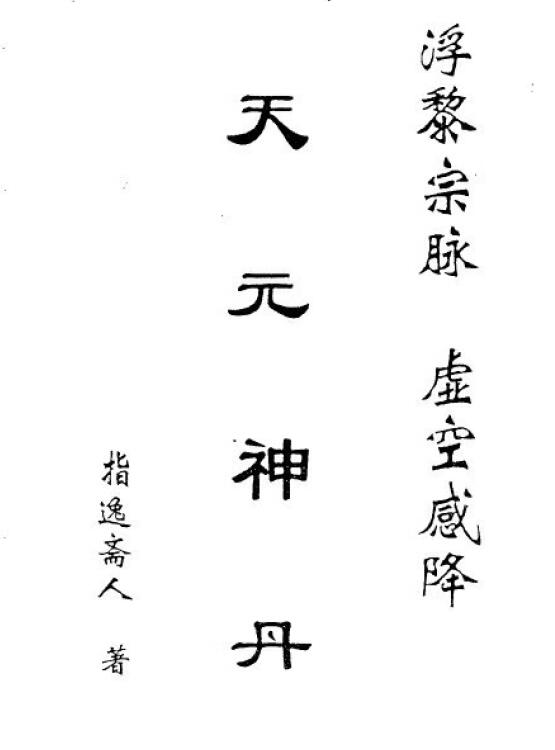 浮黎宗脉 虚空感降
天元神丹
指逸斋人 著